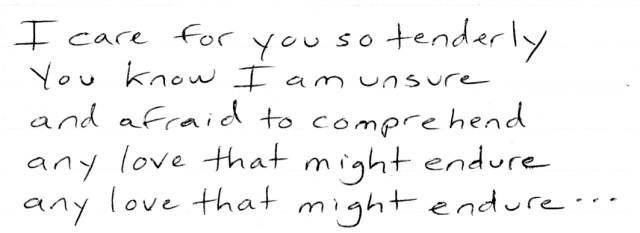 I care for you so tenderly
You know I am unsure
and afraid to comprehend
any love that might endure
any love that might endure...